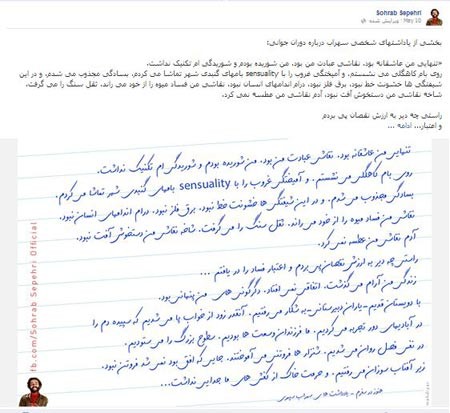 Sohrab Sepehri
May 10 · ویرایش شده
بخشی از یاداشتهای شخصی سهراب درباره دوران جوانی:
«تنهایی من عاشقانه بود. نقاشی عبادت من بود. من شوریده بودم و شوریدگی ام تکنیک نداشت.
روی بام کاهگلی می نشستم. و آمیختگی غروب را با sensuality بامهای گنبدی شهر تماشا می کردم. بسادگی مجذوب می شدم. و در این
شیفتگی ها خشونت خط نبود. برق فلز نبود. درام اندامهای انسان نبود. نقاشی من فساد میوه را از خود می راند. ثقل سنگ را می گرفت.
شاخه نقاشی من دستخوش آفت نبود. آدم نقاشی من عطسه نمی کرد.
راستی چه دیر به ارزش نقصان پی بردم
و اعتبار... ادامه ...
تنهایی من عاشقانه بود. نقاشی عبادت من بود. من شوریده بودم و شوریدگی ام تکنیک نداشت.
روی بام کاهگلی می نشستم. و آمیختگی غروب را با sensuality بامهای گنبدی شهر تماشا می کردم.
بسادگی مجذوب می شدم. و در این شیفتگی ها خشونت خط نبود. برق فلز نبود. درام اندامهای انسان نبود.
نقاشی من فساد میوه را از خود می راند. ثقل سنگ را می گرفت. شاخه نقاشی من دستخوش آفت نبود.
آدم نقاشی من عطسه نمی کرد.
راستی چه دیر به ارزش نقصان پی بردم و اعتبار فساد را دریافتم ...
زندگی من آرام می گذشت. اتفاقی نمی افتاد. دگرگونی های من پنهانی بود.
با دوستان قدیم - یاران دبیرستانی - به شکار می رفتیم. آنقدر زود از خواب پا می شدیم که سپیده دم را
در آبادیهای دور تجربه می کردیم. ما فرزندان وسعت ها بودیم. سطوح بزرگ را می ستودیم.
در نفس فصل روان می شدیم. شنزار ها فروتنی می آموختند. جایی که افق بود نمی شد فروتن نبود.
زیر آفتاب سوزان می رفتیم. و حرمت خاک از کفش های ما جدایی نداشت...
fb.com/Sohrab Sepehri Official